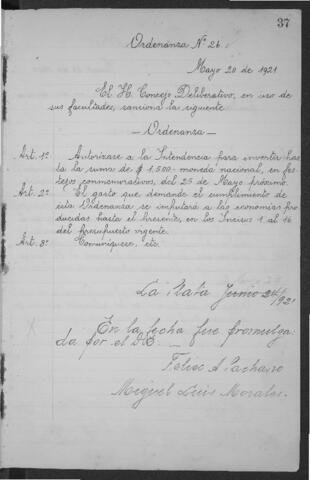 37
Ordenanza Nº 26.
Mayo 20 de 1921
El H. Concejo Deliberativo, en uso de
sus facultades, sanciona la siguiente
— Ordenanza —
Art. 1º Autorízase a la Intendencia para invertir has
ta la suma de $ 1.500 - moneda nacional, en fes
tejos conmemorativos, del 25 de Mayo próximo.
Art. 2º El gasto que demande el cumplimiento de
esta Ordenanza se imputará a las economías pro
ducidas hasta el presente, en los Incisos 1 al 16
del presupuesto vigente.
Art. 3º Comuníquese, etc.
La Plata Junio /921
En la fecha fue promulga
da por el D.E.
Felix A
Miguel Luis Morales.